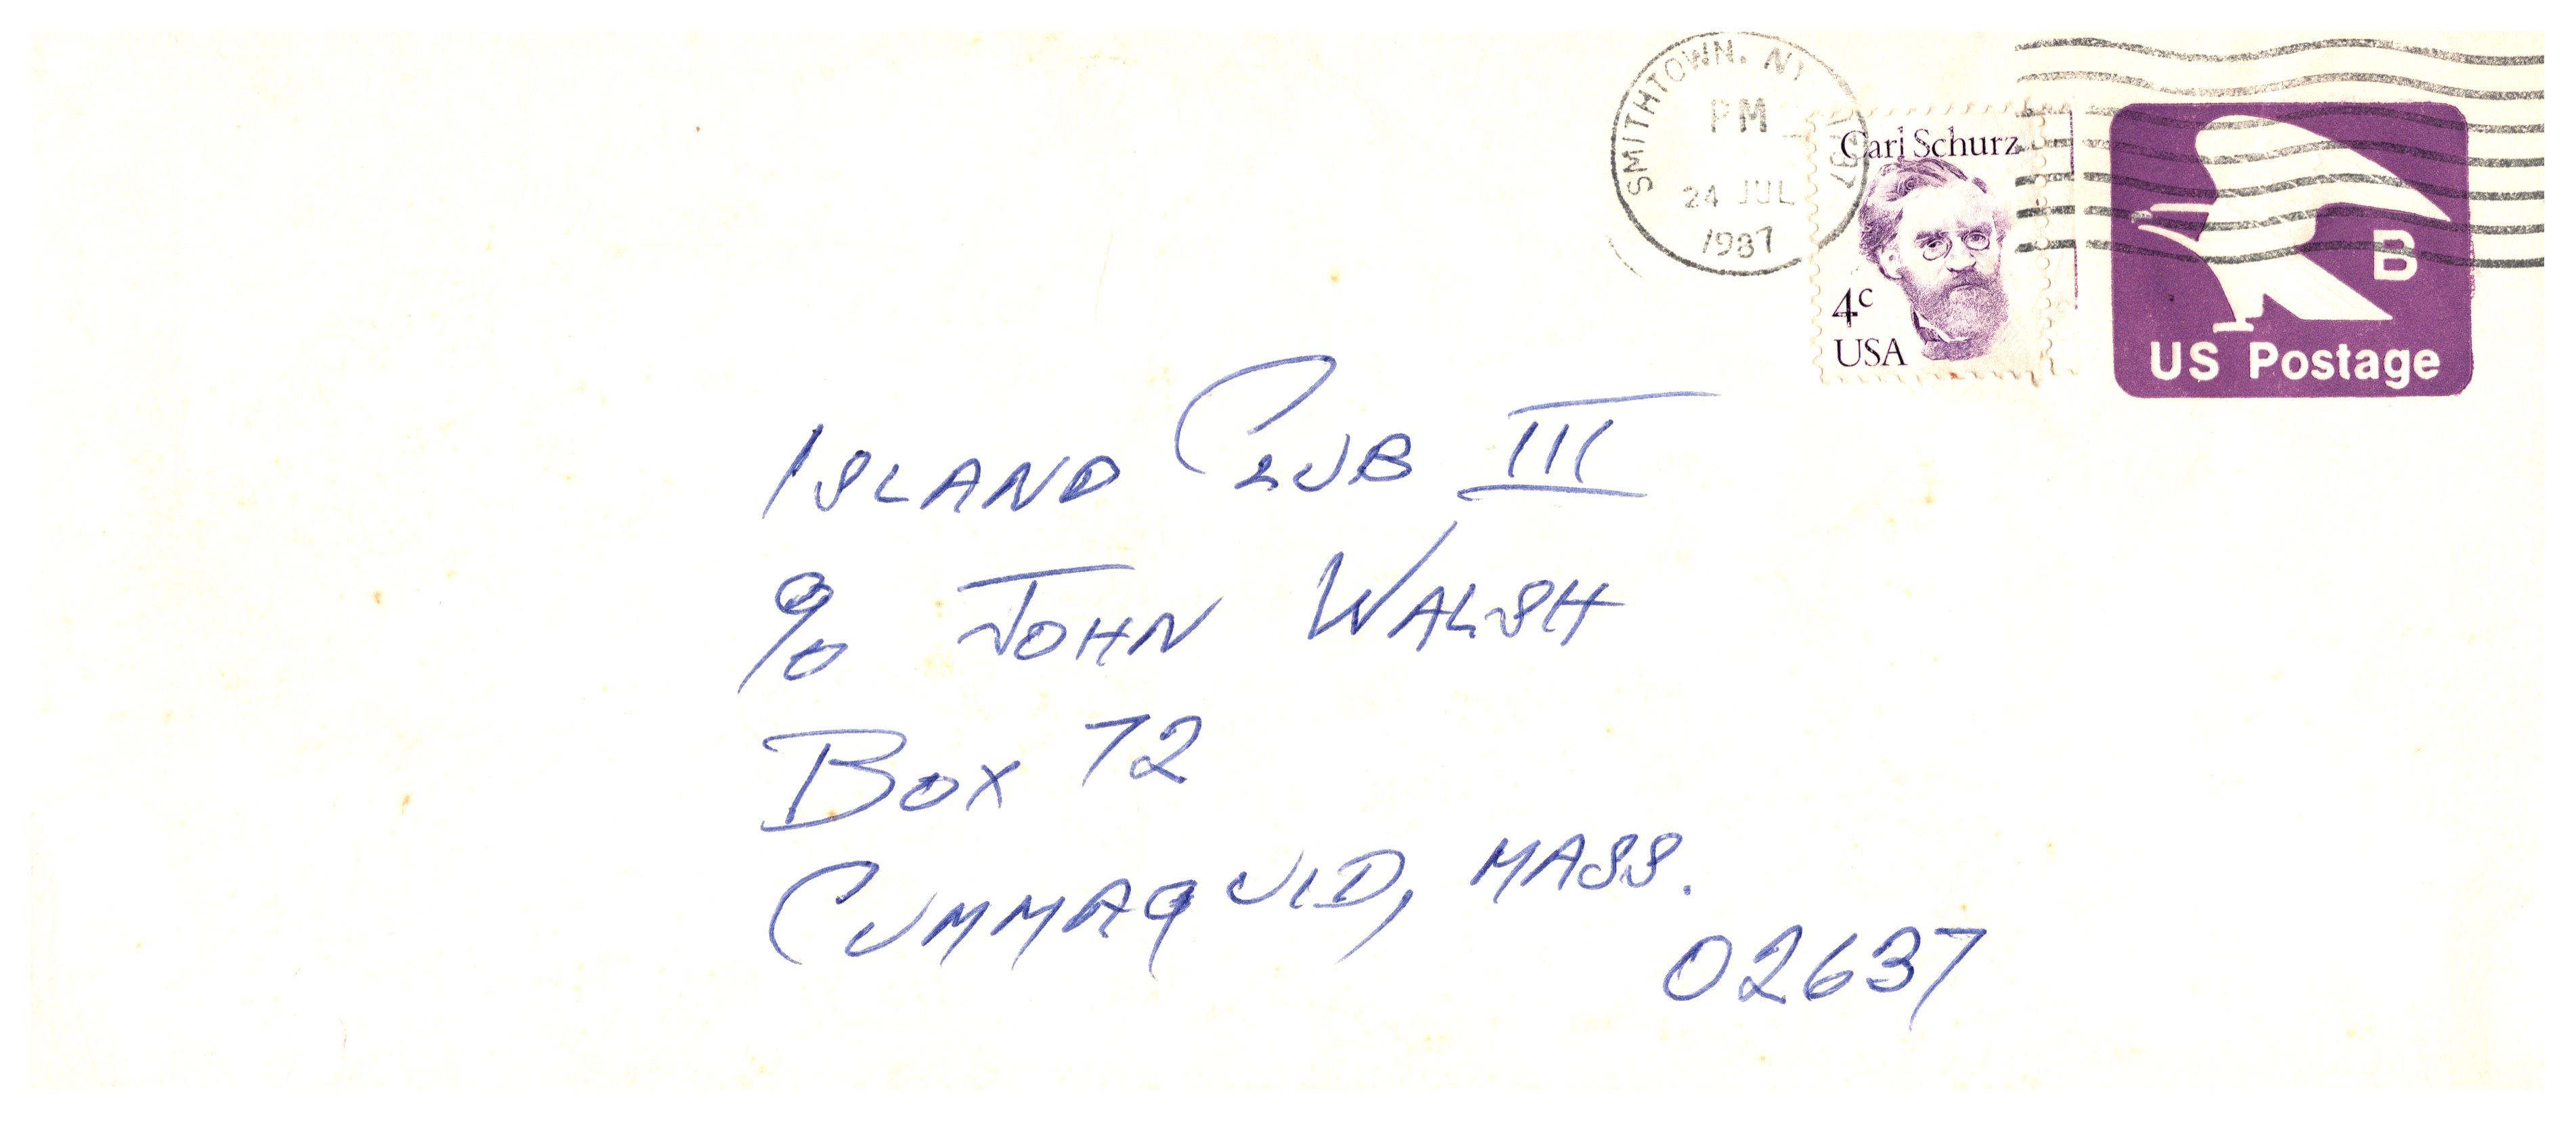 SMITHTOWN. NY 11787
PM
24 JUL
1987
Carl Schurz
4c
USA
B
US Postage
ISLAND CLUB III
% JOHN WALSH
BOX 72
CUMMAQUID, MASS.
02637